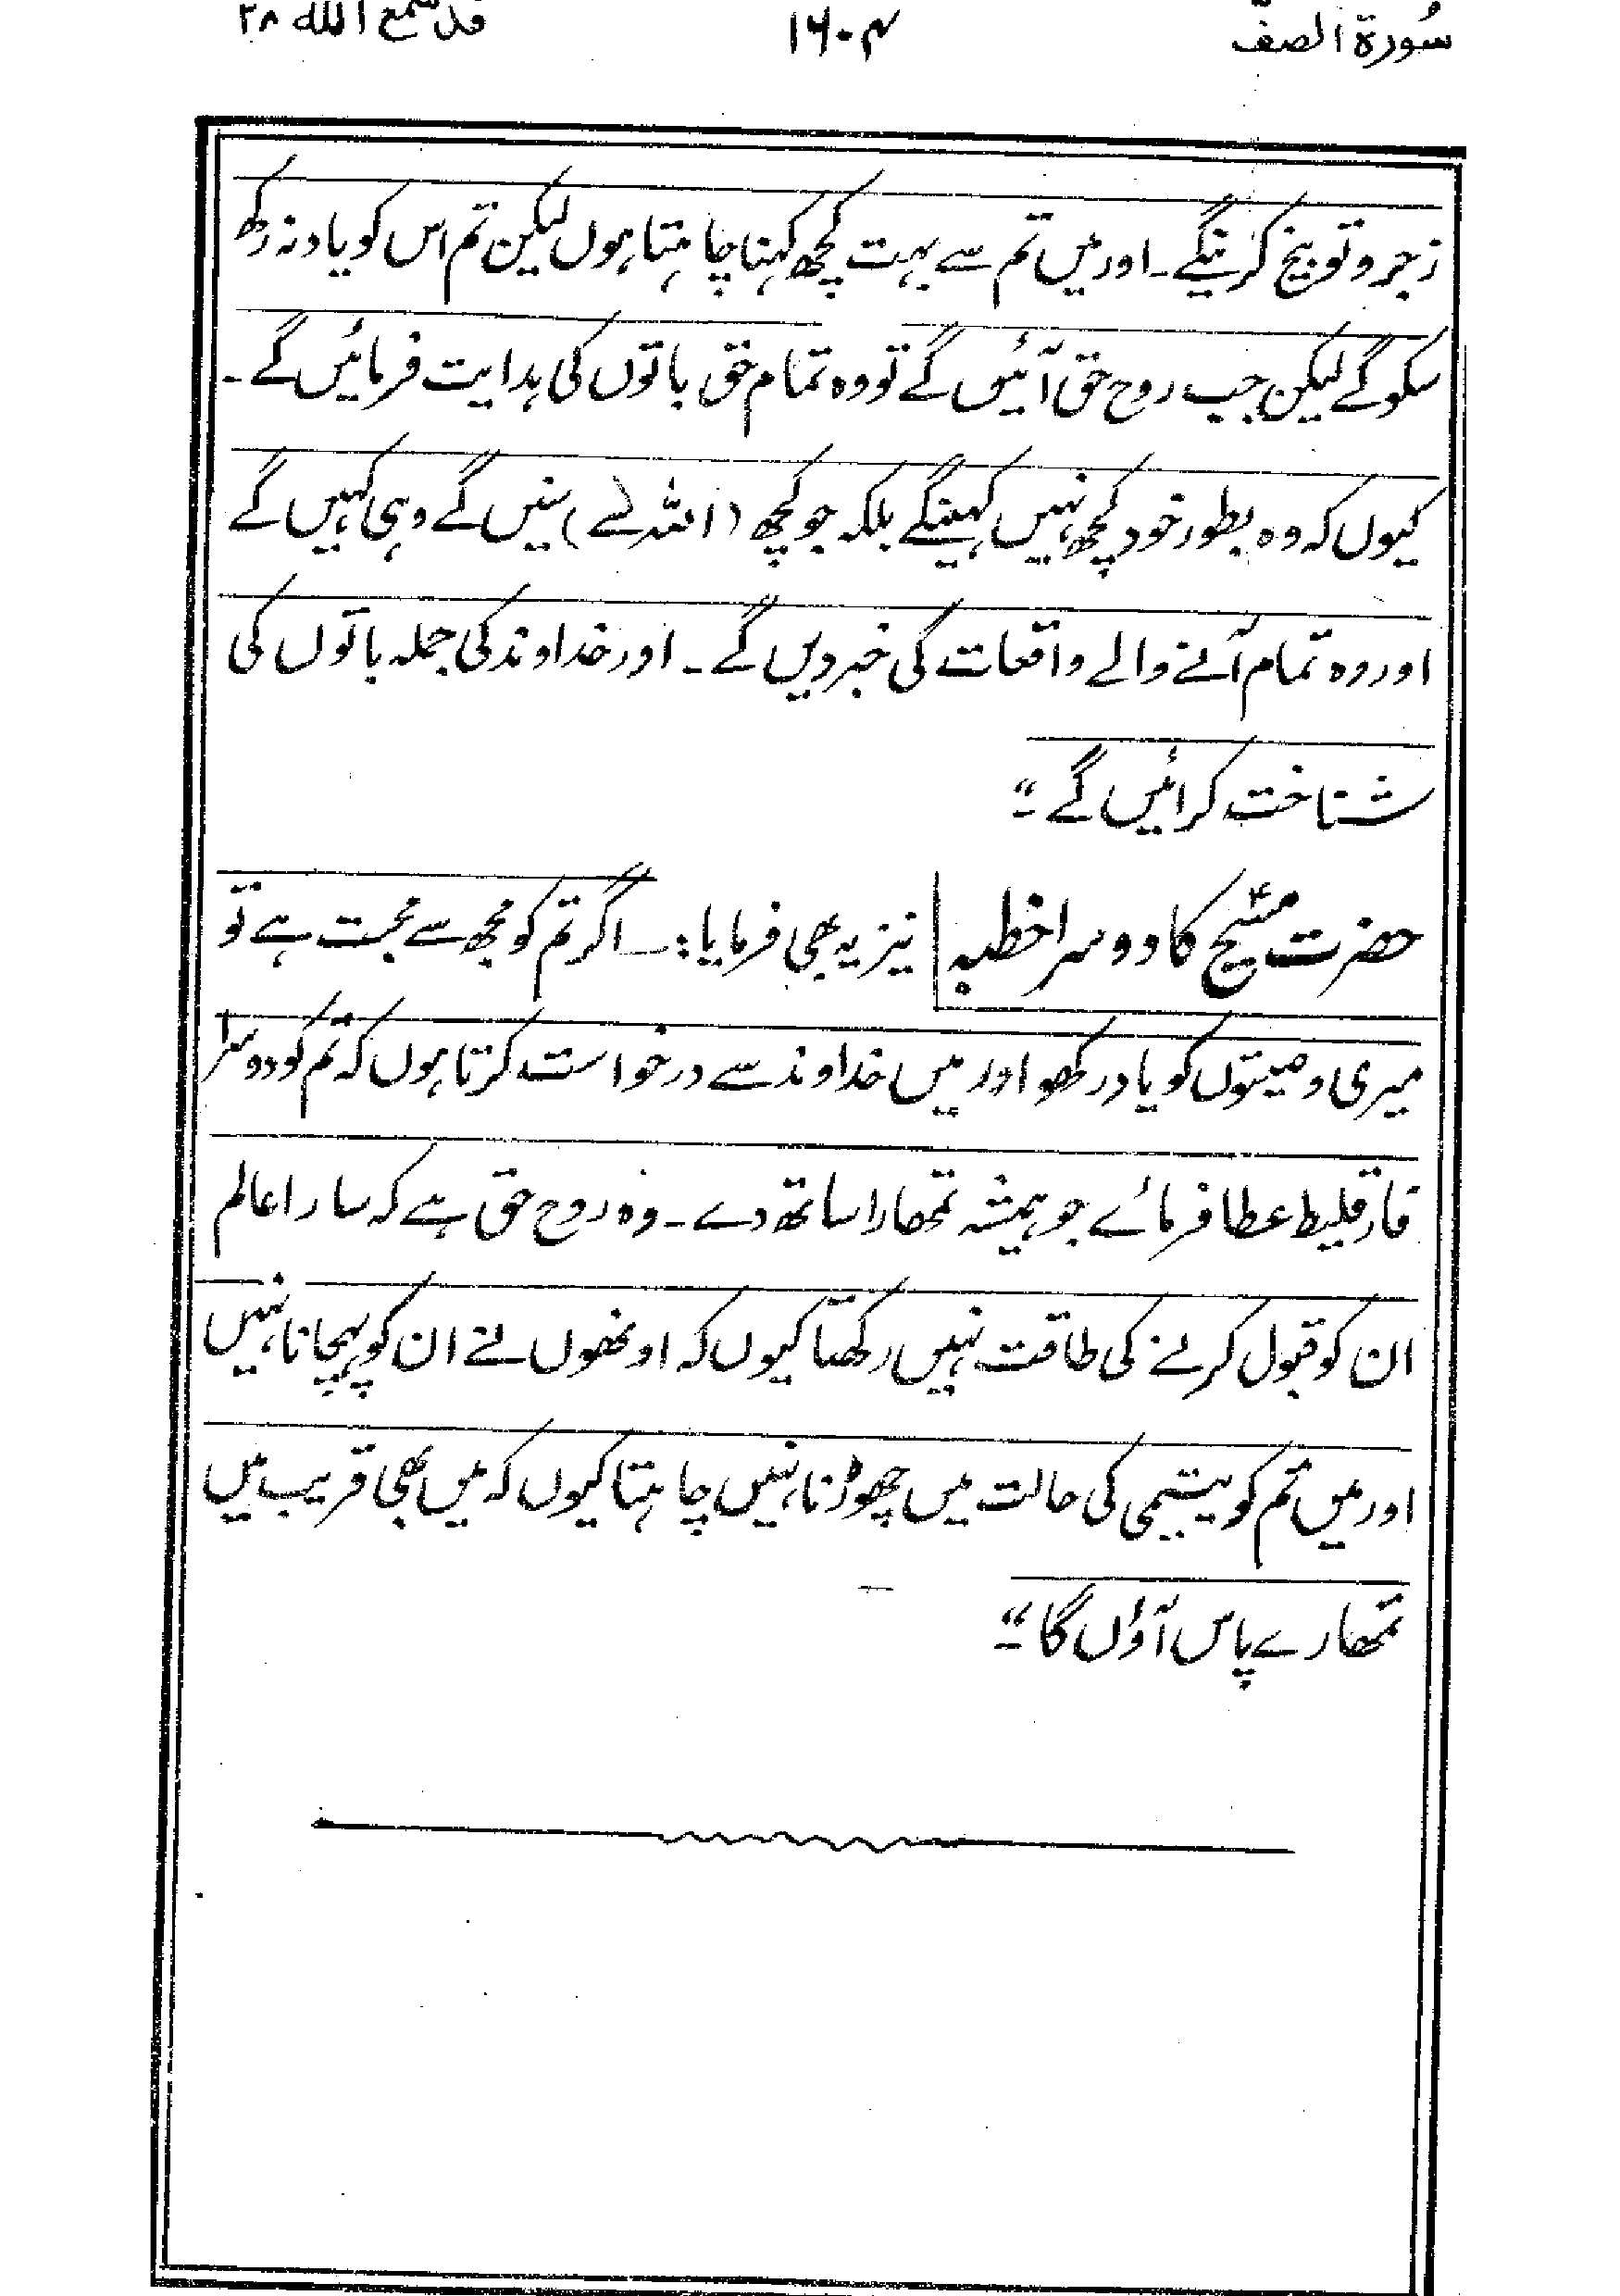 سُورة الصف ۱۶۰۴ قد سمع الله ۲۸
زجر و توبیخ کرینگے۔ اور میں تم سے بہت کچھ کہنا چاہتا ہوں لیکن تم اس کو یاد نہ رکھ
سکو گے لیکن جب روح حق آئیں گے تو وہ تمام حق باتوں کی ہدایت فرمائیں گے۔
کیوں کہ وہ بطور خود کچھ نہیں کہینگے بلکہ جو کچھ (اللہ سے) سنیں گے وہی کہیں گے
اور وہ تمام آنے والے واقعات کی خبر دیں گے۔ اور خداوند کی جملہ باتوں کی
شناخت کرائیں گے۔“
حضرت مسیحؑ کا دوسرا خطبہ نیز یہ بھی فرمایا:۔ اگر تم کو مجھ سے محبت ہے تو
میری وصیتوں کو یاد رکھو اور میں خداوند سے درخواست کرتا ہوں کہ تم کو دوسرا
فارقلیط عطا فرمائے جو ہمیشہ تمھارا ساتھ دے۔ وہ روح حق ہے کہ سارا عالم
ان کو قبول کرنے کی طاقت نہیں رکھتا کیوں کہ اونھوں نے ان کو پہچانا نہیں
اور میں تم کو یتیمی کی حالت میں چھوڑنا نہیں چاہتا کیوں کہ میں بھی قریب میں
تمھارے پاس آؤں گا۔“